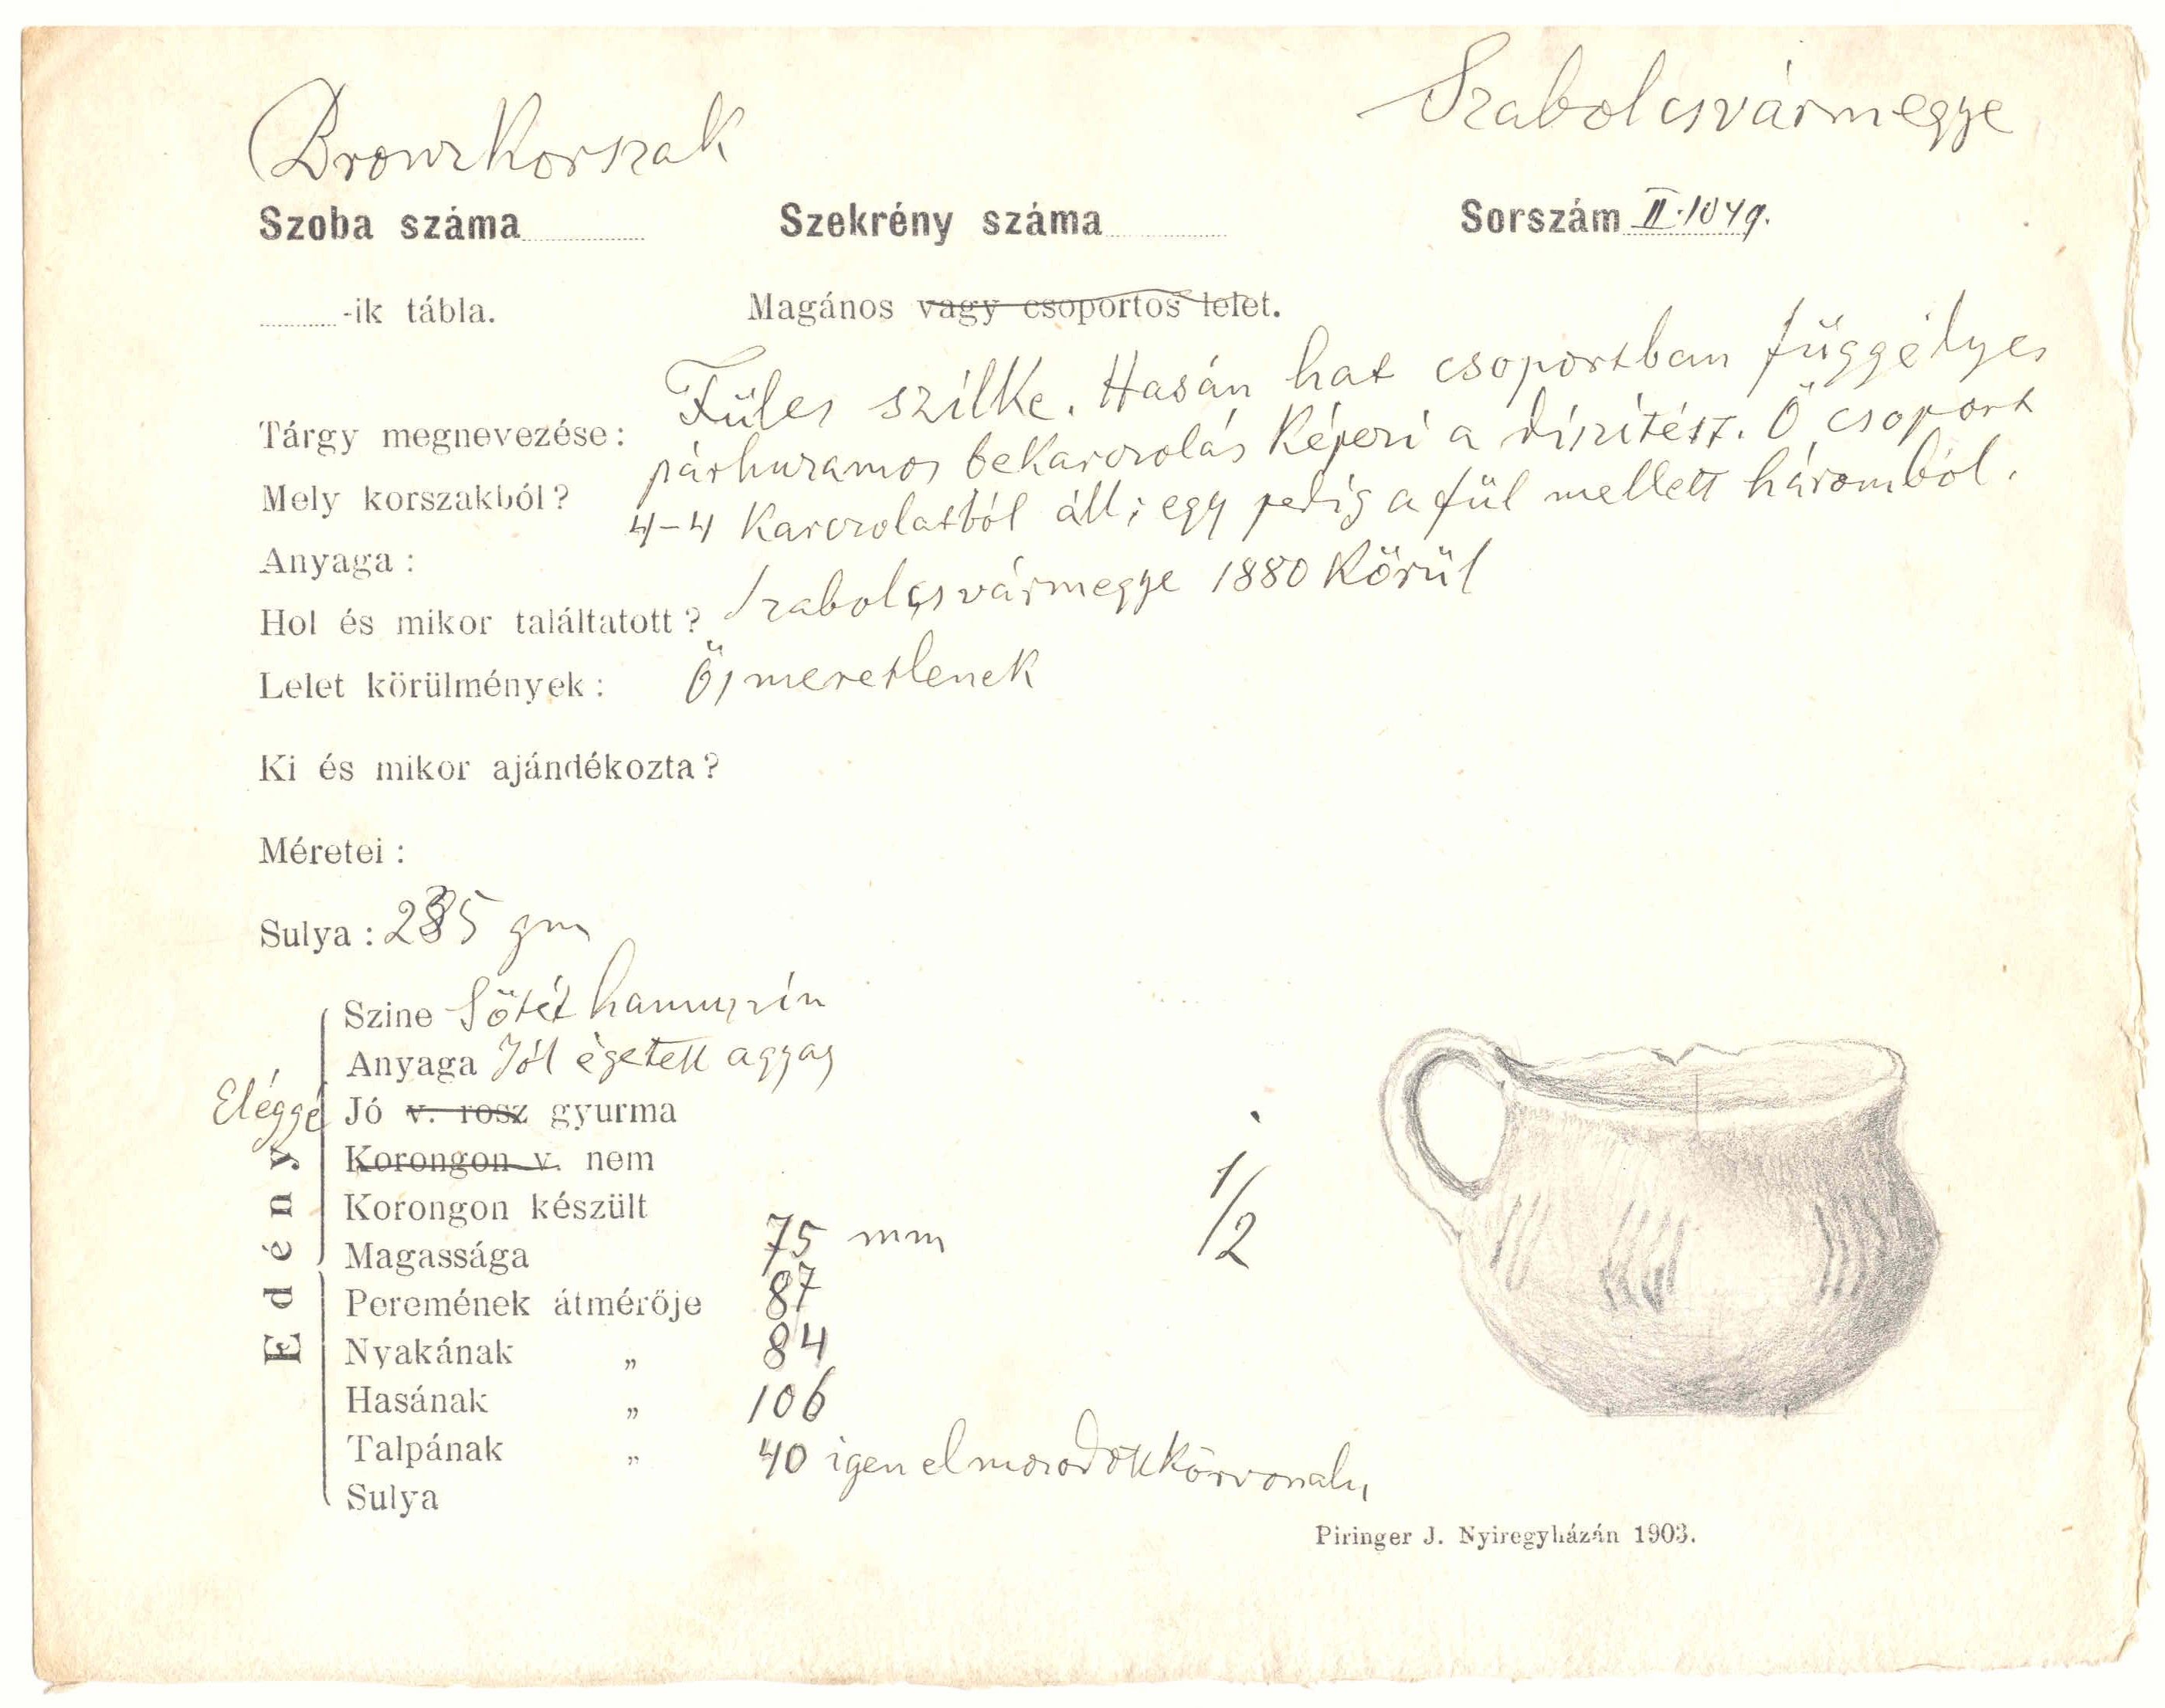 Bronzkorszak
Szabolcsvármegye
Szoba száma
Szekrény száma
Sorszám II.1049.
-ik tábla.
Magános vagy csoportos lelet.
Füles szilke. Hasán hat csoportban függélyes
Tárgy megnevezése:
párhuzamos bekarczolás képezi a díszitést. Ö csoport
Mely korszakból?
4-4 karczolatból áll; egy pedig a fül mellett háromból.
Anyaga:
Szabolcsvármegye 1880 körül
Hol és mikor találtatott?
Lelet körülmények: Ösmeretlenek
Ki és mikor ajándékozta?
Méretei:
Sulya: 235 gm
Szine Sötét hamuszín
Anyaga Jól égetett agyag
Eléggé Jó v. rosz gyurma
Korongon v. nem
Korongon készült
Edény
1/2
Magassága 75 mm
Peremének átmérője 87
Nyakának „ 84
Hasának „ 106
Talpának „ 40 igen elmosodott körvonalu,
Sulya
Piringer J. Nyiregyházán 1903.